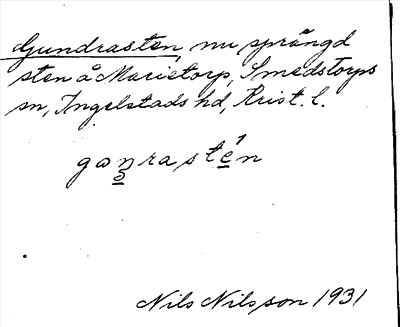 Gundrasten, nu sprängd
sten å Marietorp, Smedstorps
sn, Ingelstads hd, Krist. l.
Nils Nilsson 1931